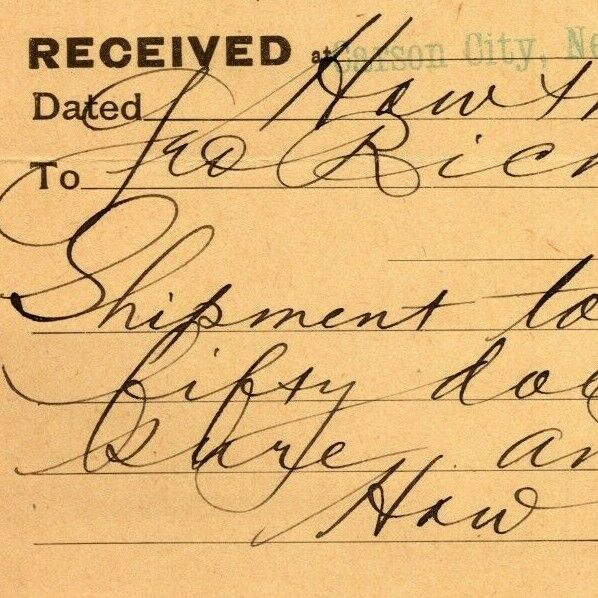 RECEIVED at Carson City, Ne
Dated Hawth
To Geo Rich
Shipment to
fifty do
sure an
Haw